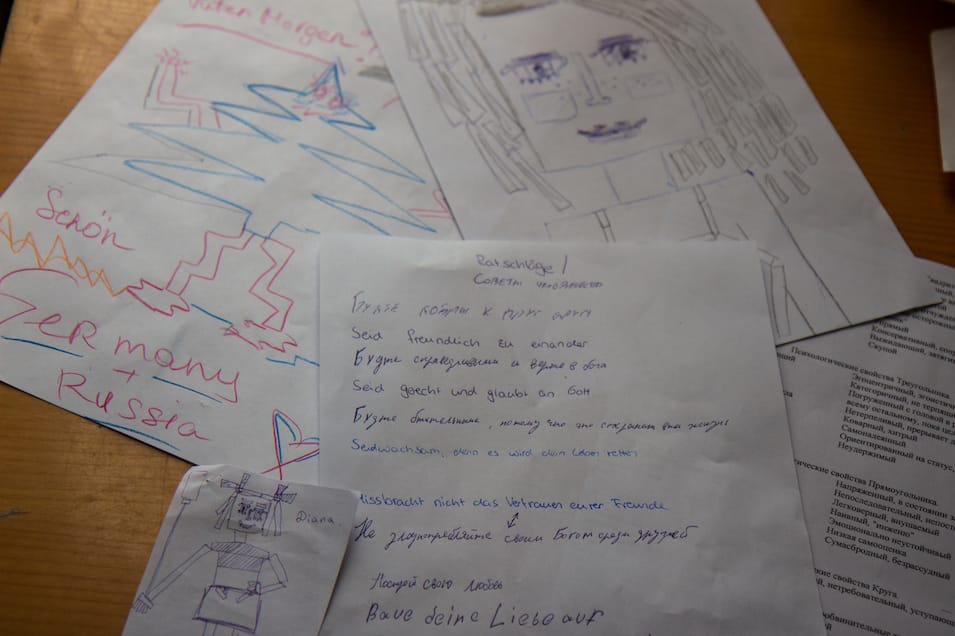 Guten Morgen
Schön
Germany
+
Russia
Diana
Ratschläge /
Советы человечеству
Будьте добры к друг другу
Seid freundlich zu einander
Будьте справедливыми и верьте в бога
Seid gerecht und glaubt an Gott
Будьте бдительными, потому что это сохранит вам жизнь
Seid wachsam, denn es wird dein Leben retten
Missbracht nicht das Vertrauen eurer Freunde
Не злоупотребляйте своим Богом среди друзей
Построй свою любовь
Baue deine Liebe auf
Прямой
Консервативный,
Выживающий,
Скупой
Психологические свойства Треугольника
Эгоцентричный,
Категоричный, не
Погруженный с головой в
всему остальному, пока
Нетерпеливый, прерывает
Коварный, хитрый
Самонадеянный
Ориентированный на статус,
Неудержимый
ические свойства Прямоугольника
Напряженный, в состоянии
Непоследовательный,
Легковерный, внушаемый
Наивный, "инженю"
Эмоционально неустойчивый
Низкая самооценка
Сумасбродный, безрассудный
ские свойства Круга
й, нетребовательный,